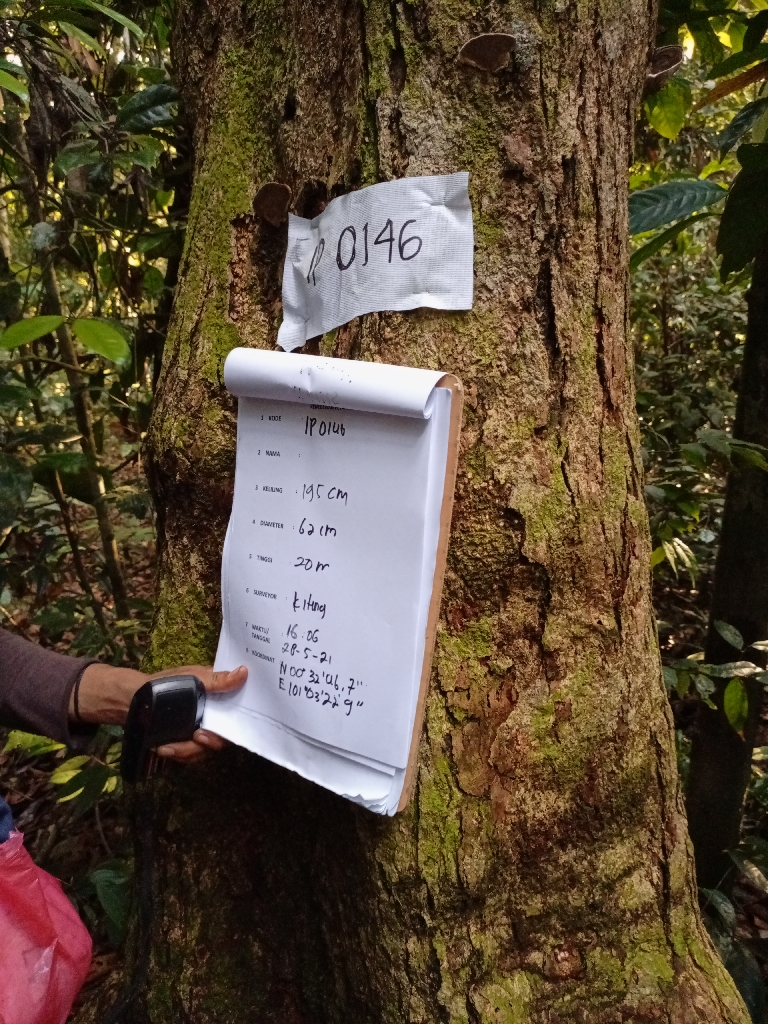 IP 0146
1 KODE IP 0146
2 NAMA :
3 KELILING : 195 cm
4 DIAMETER : 62 cm
5 TINGGI 20 m
6 SURVEYOR : Kiting
7 WAKTU/ : 16.06
TANGGAL 28-5-21
8 KOORDINAT N 00° 32' 46,7"
E 101° 03' 22,9"